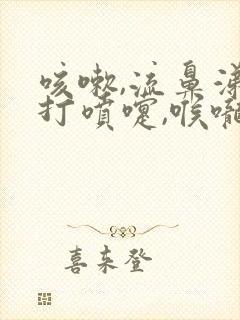 咳嗽,流鼻涕
打喷嚏,喉咙
喜来登